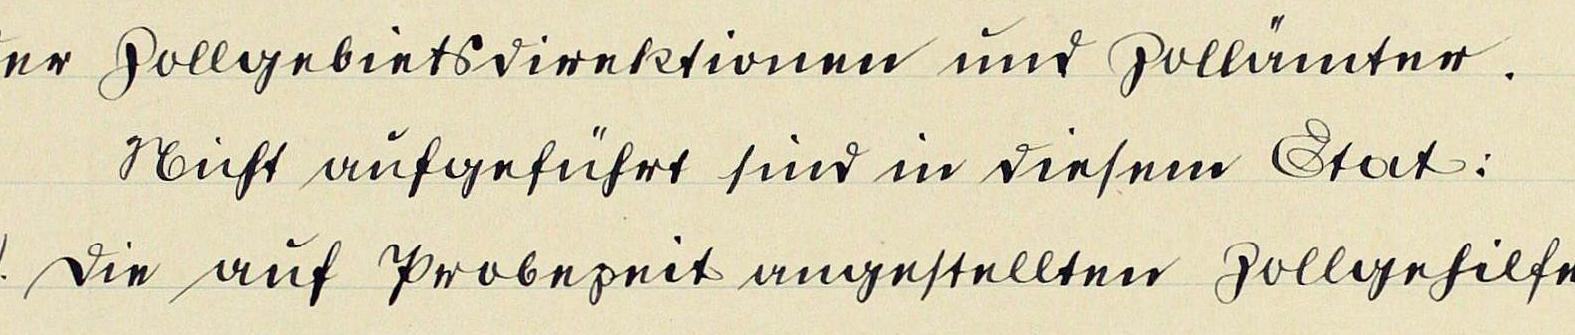 der Zollgebietsdirektionen und Zollämter.
Nicht aufgeführt sind in diesem Etat:
1. Die auf Probezeit angestellten Zollgehilfe